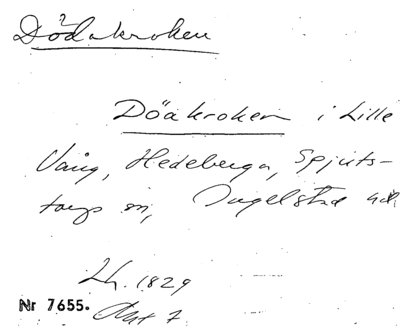 Dödakroken
Döakroken i Lille
Vång, Hedeberga, Spjuts-
torps sn, Ingelstad hd.
Lh. 1829
Akt 7
Nr 7655.